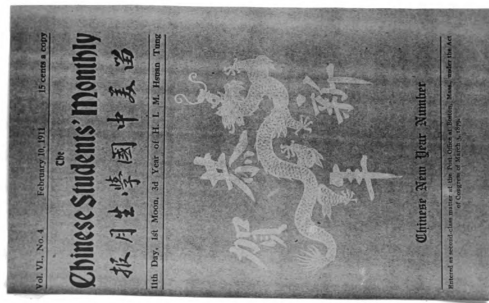 Vol. VI., No. 4 February 10, 1911 15 cents a copy
The
Chinese Students' Monthly
留美中國學生月报
11th Day, 1st Moon, 3d Year of H. I. M. Hsuan Tung
恭賀新年
Chinese New Year Number
Entered as second-class matter at the Post Office at Boston, Mass., under the Act
of Congress of March 3, 1879.